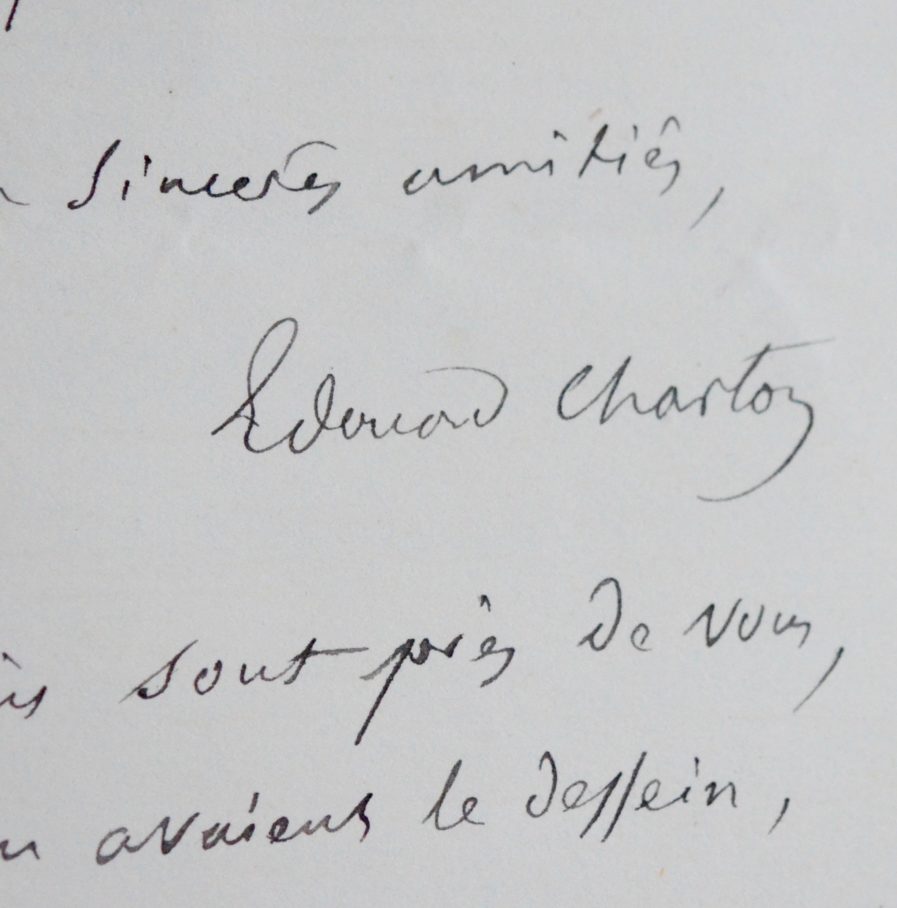 sincères amitiés,
Edouard Charton
sont près de vous,
avaient le dessein,